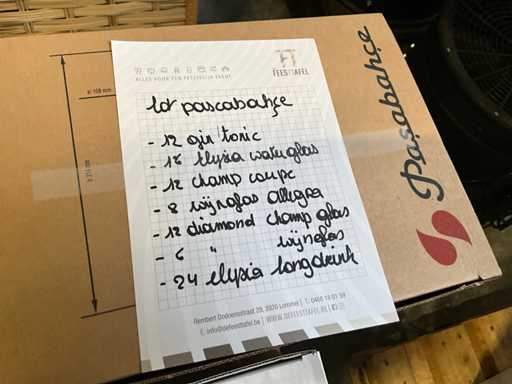 FEESTTAFEL
ALLES VOOR EEN FEESTELIJK EVENT
lot pascabahçe
- 12 gin tonic
- 16 Elysia waterglas
- 12 champ coupe
- 8 wijnglas Allegra
- 12 diamond champ glas
- 6 " wijnglas
- 24 Elysia longdrink
Rembert Dodoensstraat 39, 3920 Lommel | T: 0468 19 01 59
E: info@defeesttafel.be | WWW.DEFEESTTAFEL.BE
Paşabahçe